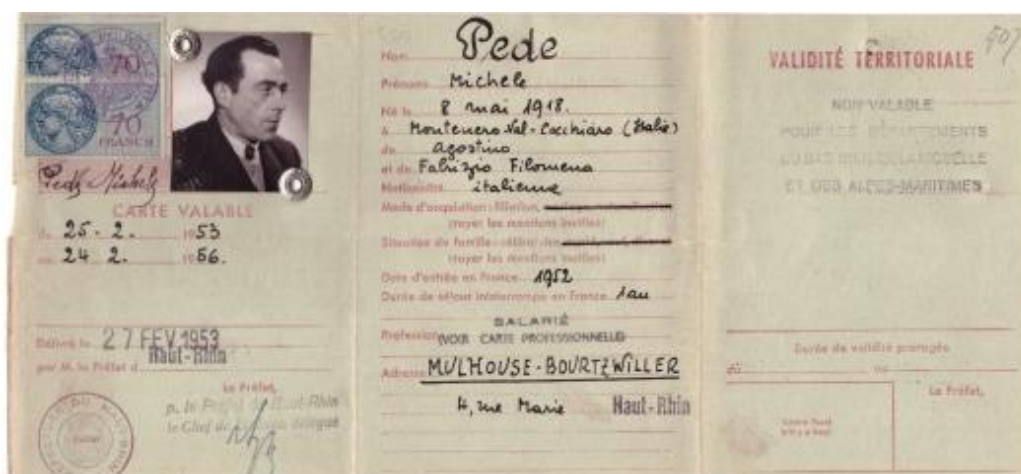 70
70
FRANCS
Pede Michele
CARTE VALABLE
du 25 - 2. 1953
au 24 2. 1956.
Délivré le 27 FEV 1953
par M. le Préfet d Haut-Rhin
Le Préfet,
p. le Préfet du Haut-Rhin
le Chef de délégué
Nom Pede
Prénoms Michele
Né le 8 mai 1918.
à Montenero-Val-Cocchiaro (Italie)
de Agostino
et de Fabrizio Filomena
Nationalité italienne
Mode d'acquisition : filiation,
(rayer les mentions inutiles)
Situation de famille : célibataire
(rayer les mentions inutiles)
Date d'entrée en France 1952
Durée de séjour ininterrompu en France 1 an
SALARIÉ
Profession (VOIR CARTE PROFESSIONNELLE)
Adresse MULHOUSE-BOURTZWILLER
4, rue Marie Haut-Rhin
507
VALIDITÉ TERRITORIALE
NON VALABLE
POUR LES DÉPARTEMENTS
DU BAS RHIN DE LA MOSELLE
ET DES ALPES-MARITIMES
Durée de validité prorogée
du au
Le Préfet,